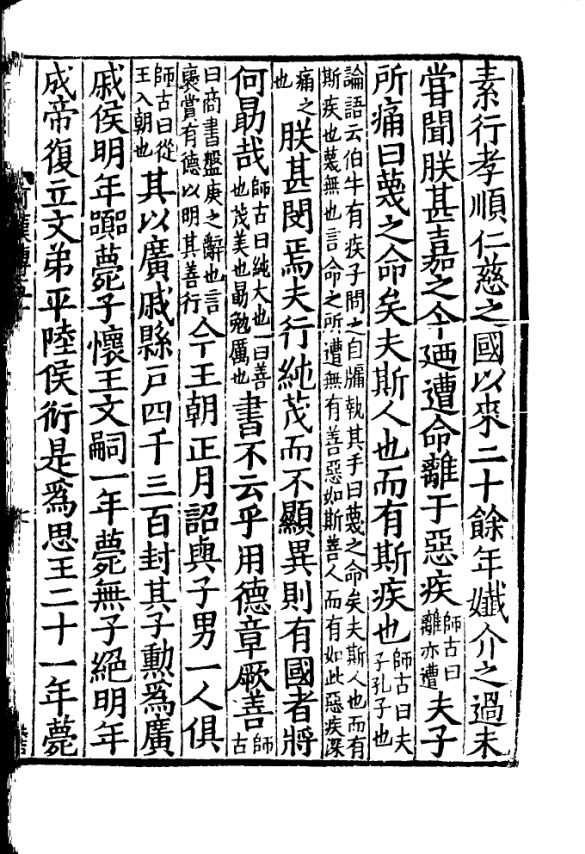 素行孝順仁慈之國以來二十餘年孅介之過未
甞聞朕甚嘉之今廼遭命離于惡疾師古曰離亦遭夫子
所痛曰蔑之命矣夫斯人也而有斯疾也師古曰夫子孔子也
論語云伯牛有疾子問之自牖執其手曰蔑之命矣夫斯人也而有
斯疾也蔑無也言命之所遭無有善惡如斯善人而有如此惡疾深
痛之也朕甚閔焉夫行純茂而不顯異則有國者將
何勗哉師古曰純大也一曰善也茂美也勗勉厲也書不云乎用德章厥善師古
曰商書盤庚之辭也言褒賞有德以明其善行今王朝正月詔與子男一人俱
師古曰從王入朝也其以廣戚縣戶四千三百封其子勳爲廣
戚侯明年囂薨子懷王文嗣一年薨無子絕明年
成帝復立文弟平陸侯衍是爲思王二十一年薨